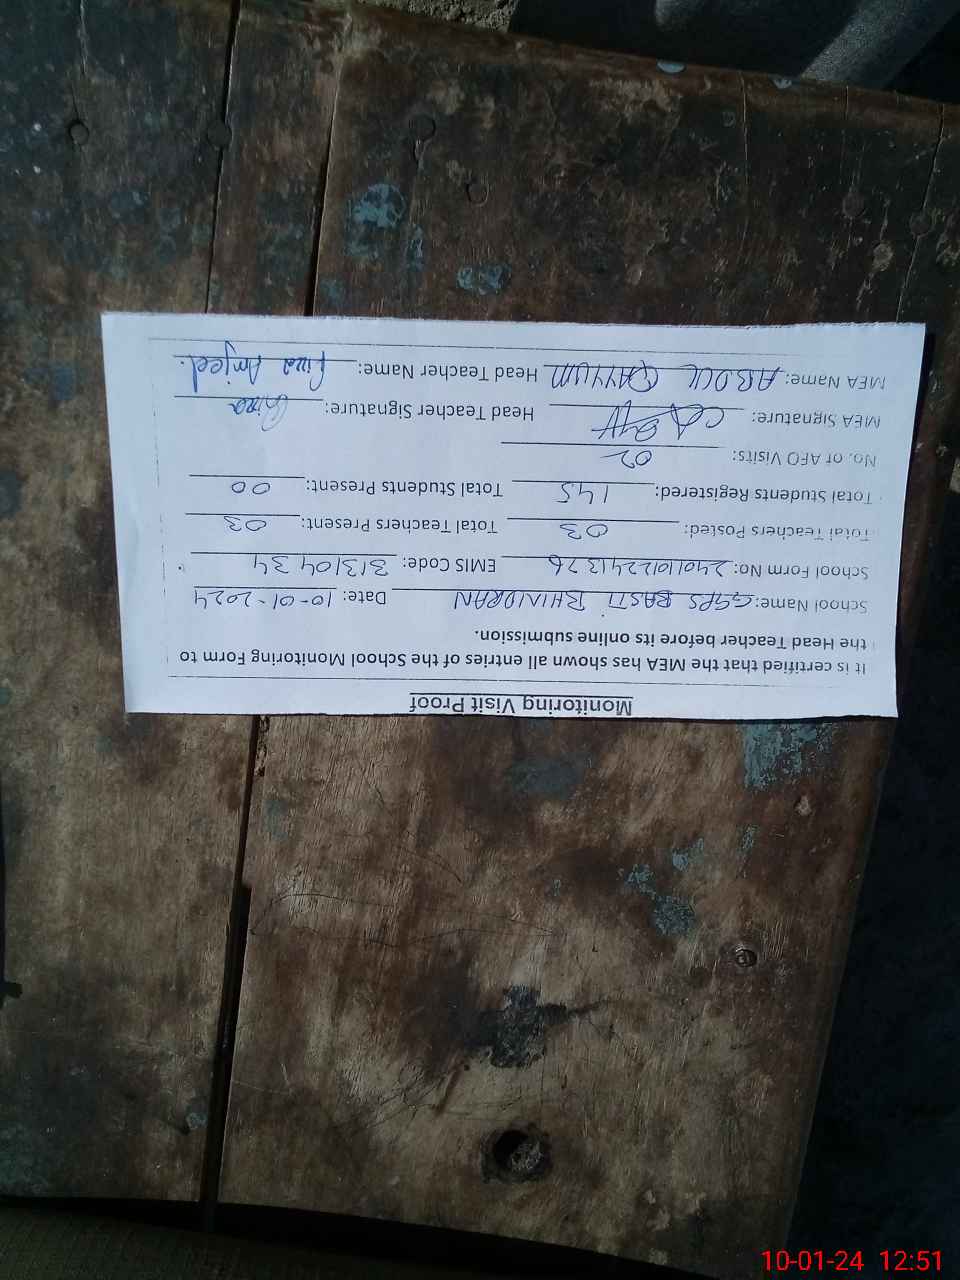 Monitoring Visit Proof
It is certified that the MEA has shown all entries of the School Monitoring Form to
the Head Teacher before its online submission.
School Name: GGPS BASTI BHINDRAN Date: 10-01-2024
School Form No: 24011012241376 EMIS Code: 31310434
Total Teachers Posted: 03 Total Teachers Present: 03
Total Students Registered: 145 Total Students Present: 00
No. of AEO Visits: 02
MEA Signature: Head Teacher Signature:
MEA Name: ABDUL QAYYUM Head Teacher Name: Fiza Amjeel.
10-01-24 12:51